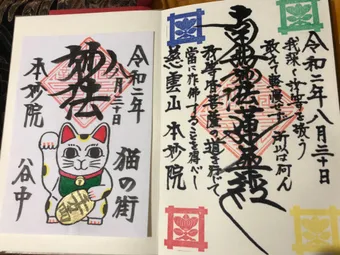 令和二年八月三十日
我深く汝等を敬う
敢えて軽慢せず所以は何ん
南無妙法蓮華経
汝等皆菩薩の道を行じて
当に作佛することを得べし
慈雲山 本妙院
猫の街
谷中
令和二年
八月三十日
妙法
本妙院